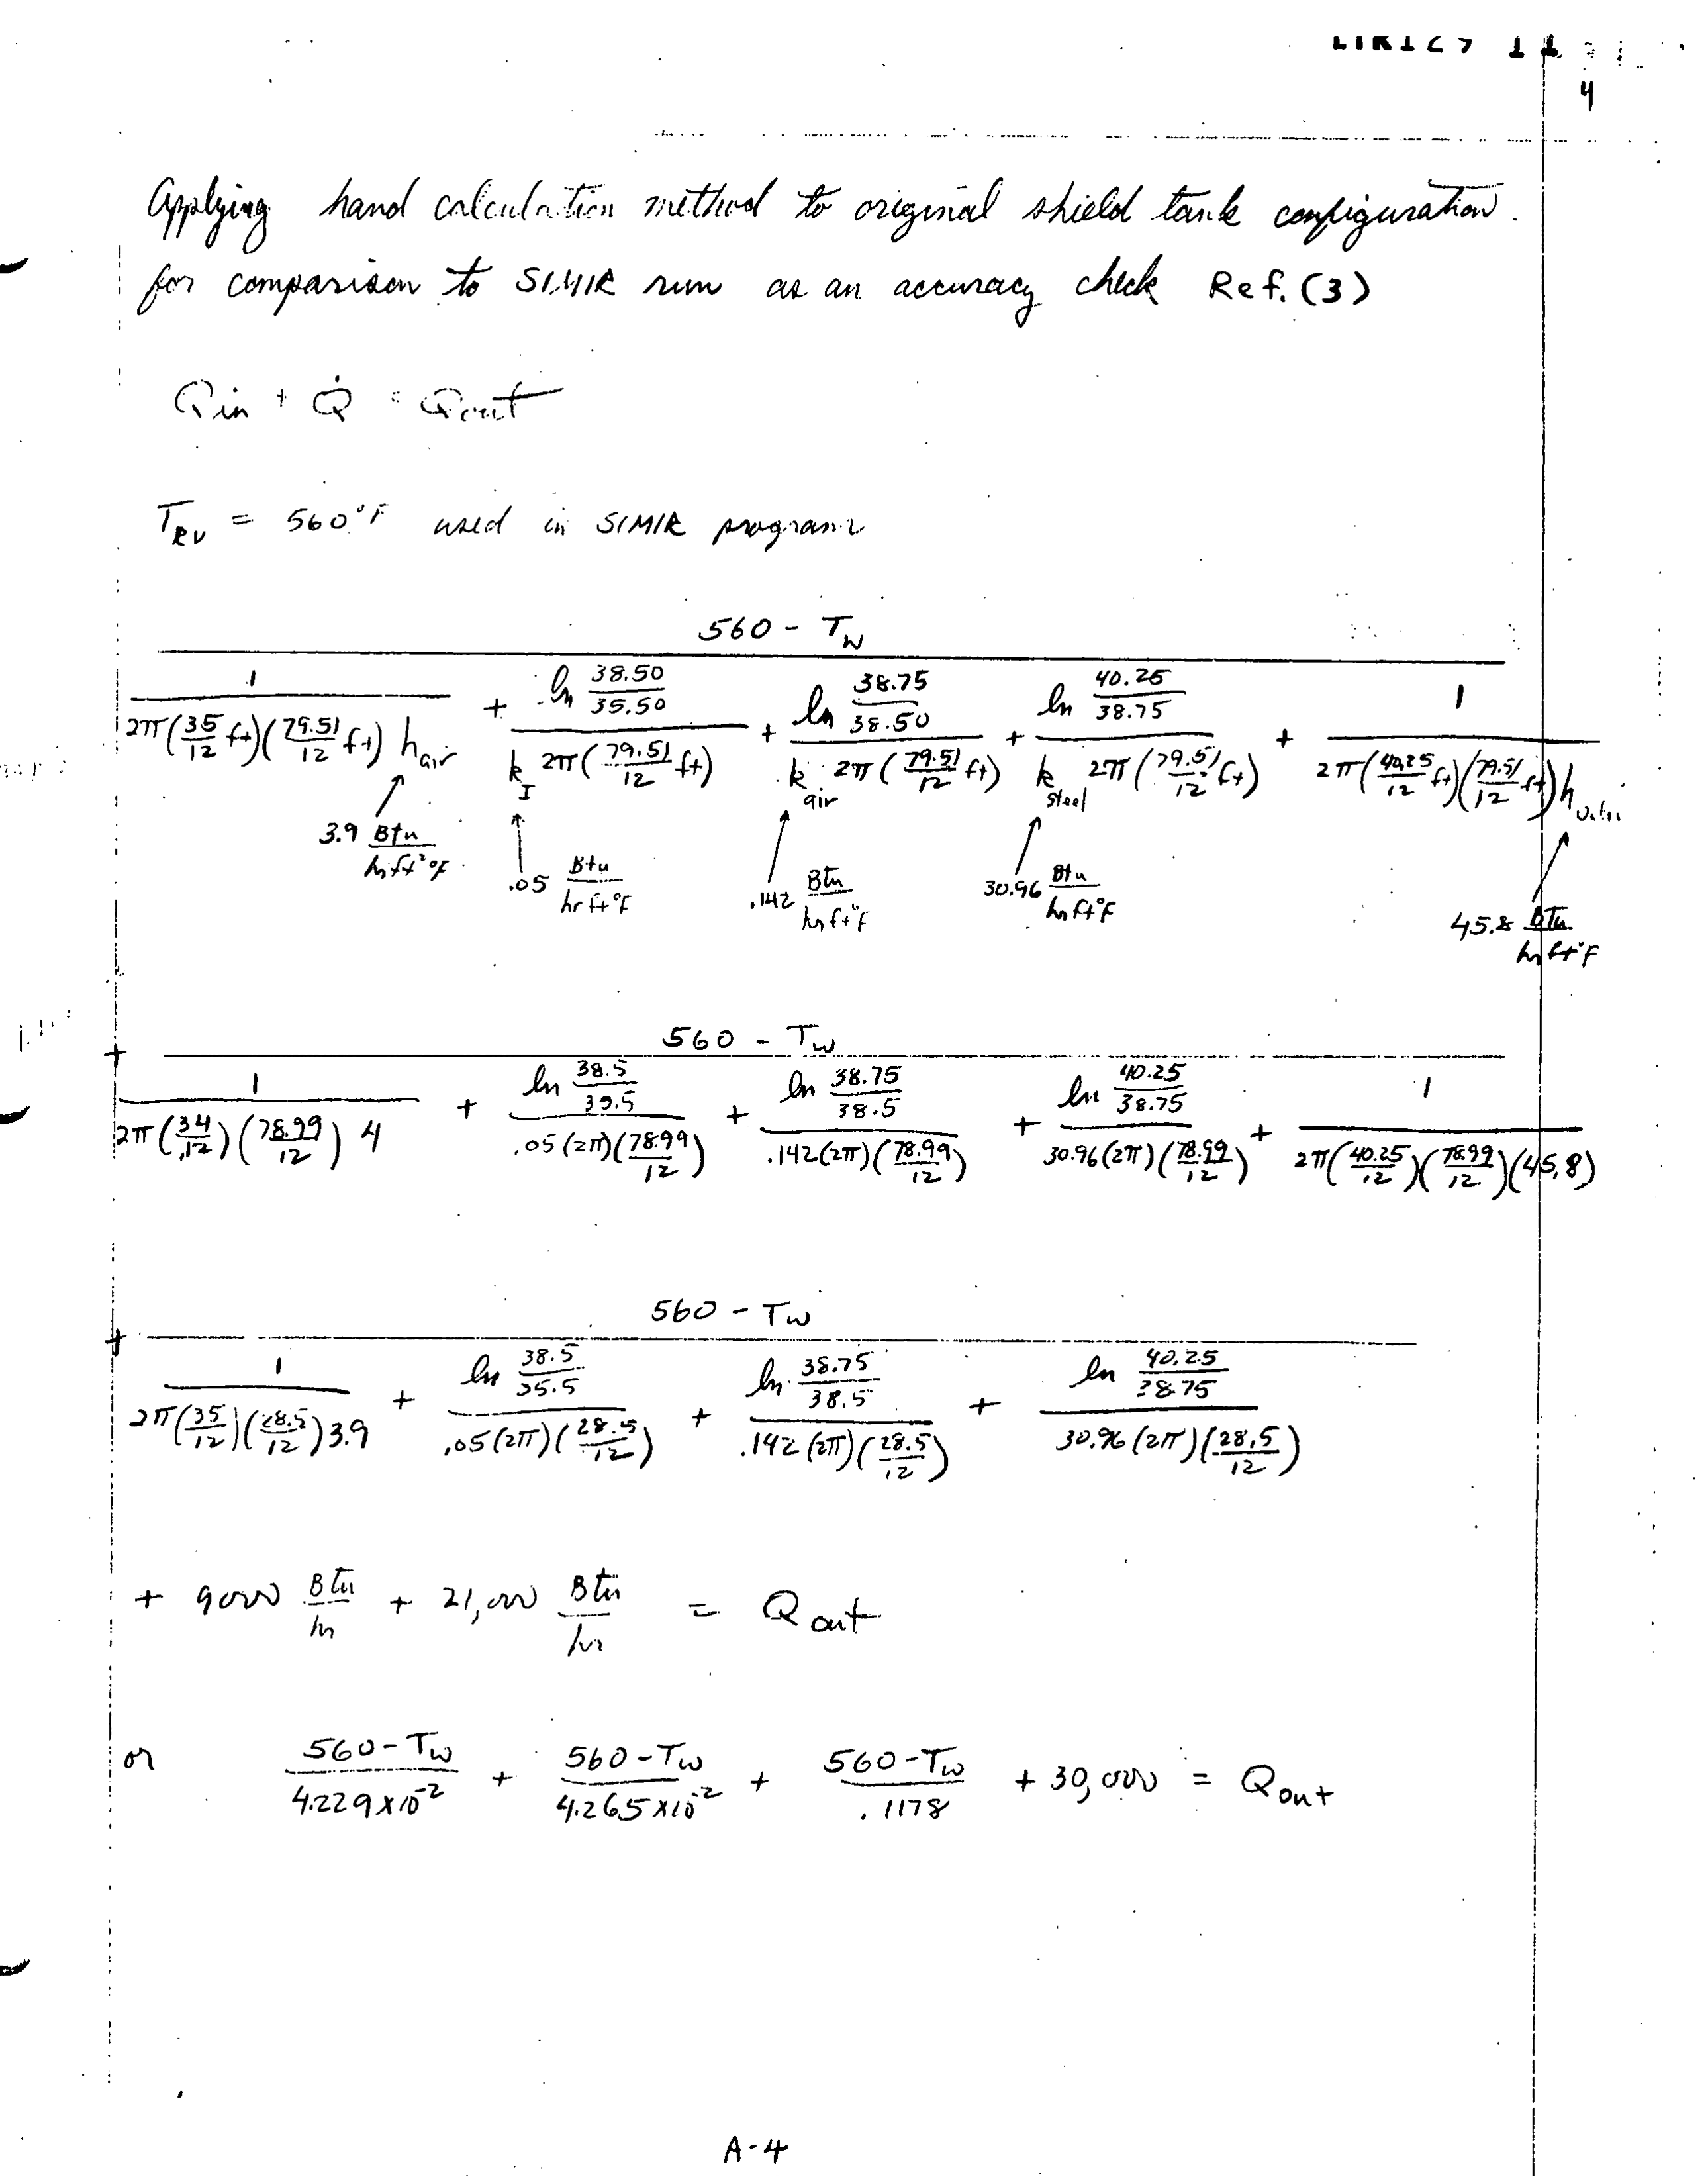 4
Applying hand calculation method to original shield tank configuration.
for comparison to SIMIR run as an accuracy check Ref. (3)
Qin + Q̇ = Qout
T_RV = 560°F used in SIMIR program
560 - T_W
1 / 2π(35/12 ft)(79.51/12 ft) h_air + ln 38.50/35.50 / k_I 2π(79.51/12 ft) + ln 38.75/38.50 / k_air 2π(79.51/12 ft) + ln 40.25/38.75 / k_steel 2π(79.51/12 ft) + 1 / 2π(40.25/12 ft)(79.51/12 ft) h
3.9 Btu/hr ft² °F .05 Btu/hr ft °F .142 Btu/hr ft °F 30.96 Btu/hr ft °F 45.8 BTu/hr ft °F
+ 560 - T_W
1 / 2π(34/12)(78.99/12) 4 + ln 38.5/39.5 / .05(2π)(78.99/12) + ln 38.75/38.5 / .142(2π)(78.99/12) + ln 40.25/38.75 / 30.96(2π)(78.99/12) + 1 / 2π(40.25/12)(78.99/12)(45.8)
+ 560 - T_W
1 / 2π(35/12)(28.5/12) 3.9 + ln 38.5/35.5 / .05(2π)(28.5/12) + ln 38.75/38.5 / .142(2π)(28.5/12) + ln 40.25/38.75 / 30.96(2π)(28.5/12)
+ 9000 Btu/hr + 21,000 Btu/hr = Q out
or 560-T_W / 4.229x10⁻² + 560-T_W / 4.265x10⁻² + 560-T_W / .1178 + 30,000 = Q out
A-4